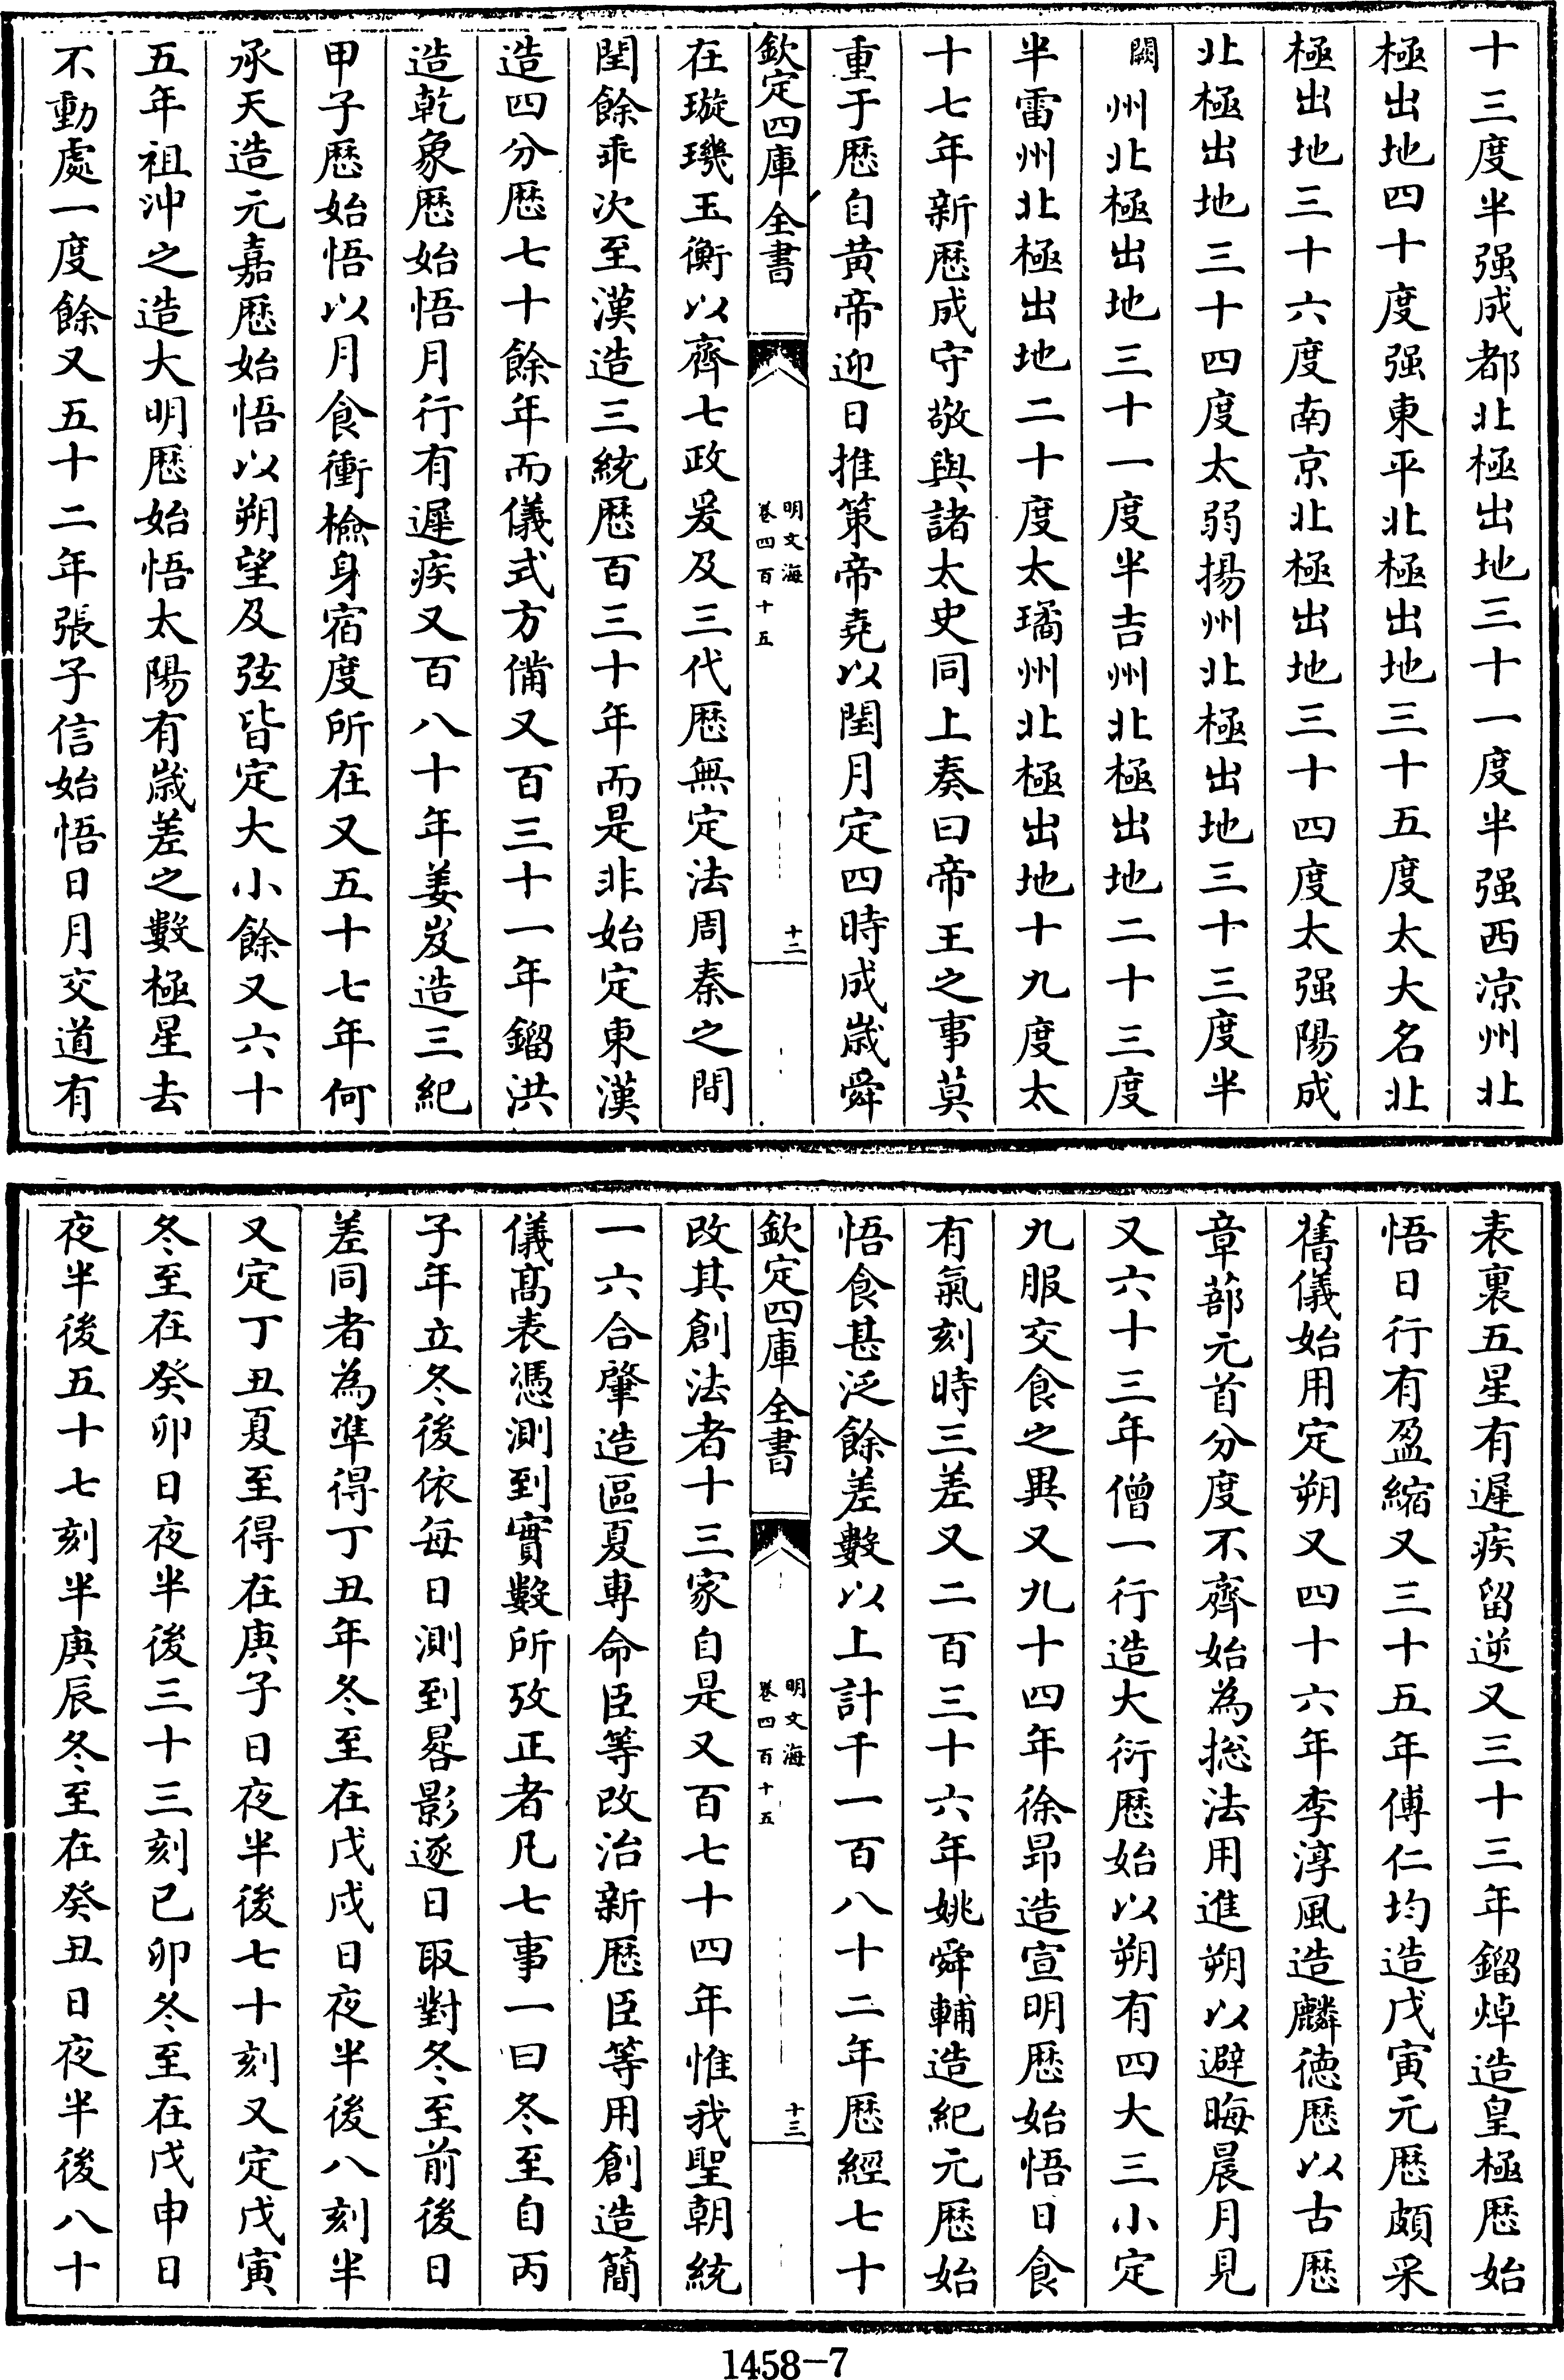 十三度半强成都北極出地三十一度半强西涼州北
極出地四十度强東平北極出地三十五度太大名北
極出地三十六度南京北極出地三十四度太强陽成
北極出地三十四度太弱揚州北極出地三十三度半
闕州北極出地三十一度半吉州北極出地二十三度
半雷州北極出地二十度太璚州北極出地十九度太
十七年新歴成守敬與諸太史同上奏曰帝王之事莫
重于歴自黄帝迎日推策帝堯以閏月定四時成歳舜
欽定四庫全書
明文海
卷四百十五
十二
在璇璣玉衡以齊七政爰及三代歴無定法周秦之間
閏餘乖次至漢造三統歴百三十年而是非始定東漢
造四分歴七十餘年而儀式方備又百三十一年鎦洪
造乾象歴始悟月行有遲疾又百八十年姜岌造三紀
甲子歴始悟以月食衝檢身宿度所在又五十七年何
承天造元嘉歴始悟以朔望及弦皆定大小餘又六十
五年祖沖之造大明歴始悟太陽有歳差之數極星去
不動處一度餘又五十二年張子信始悟日月交道有
表裏五星有遲疾留逆又三十三年鎦焯造皇極歴始
悟日行有盈縮又三十五年傅仁均造戊寅元歴頗采
舊儀始用定朔又四十六年李淳風造麟徳歴以古歴
章蔀元首分度不齊始為捴法用進朔以避晦晨月見
又六十三年僧一行造大衍歴始以朔有四大三小定
九服交食之異又九十四年徐昂造宣明歴始悟日食
有氣刻時三差又二百三十六年姚舜輔造紀元歴始
悟食甚泛餘差數以上計千一百八十二年歴經七十
欽定四庫全書
明文海
卷四百十五
十三
改其創法者十三家自是又百七十四年惟我聖朝統
一六合肇造區夏專命臣等改治新歴臣等用創造簡
儀髙表憑測到實數所攷正者凡七事一曰冬至自丙
子年立冬後依每日測到晷影逐日取對冬至前後日
差同者為準得丁丑年冬至在戊戌日夜半後八刻半
又定丁丑夏至得在庚子日夜半後七十刻又定戊寅
冬至在癸卯日夜半後三十三刻已卯冬至在戊申日
夜半後五十七刻半庚辰冬至在癸丑日夜半後八十
1458-7